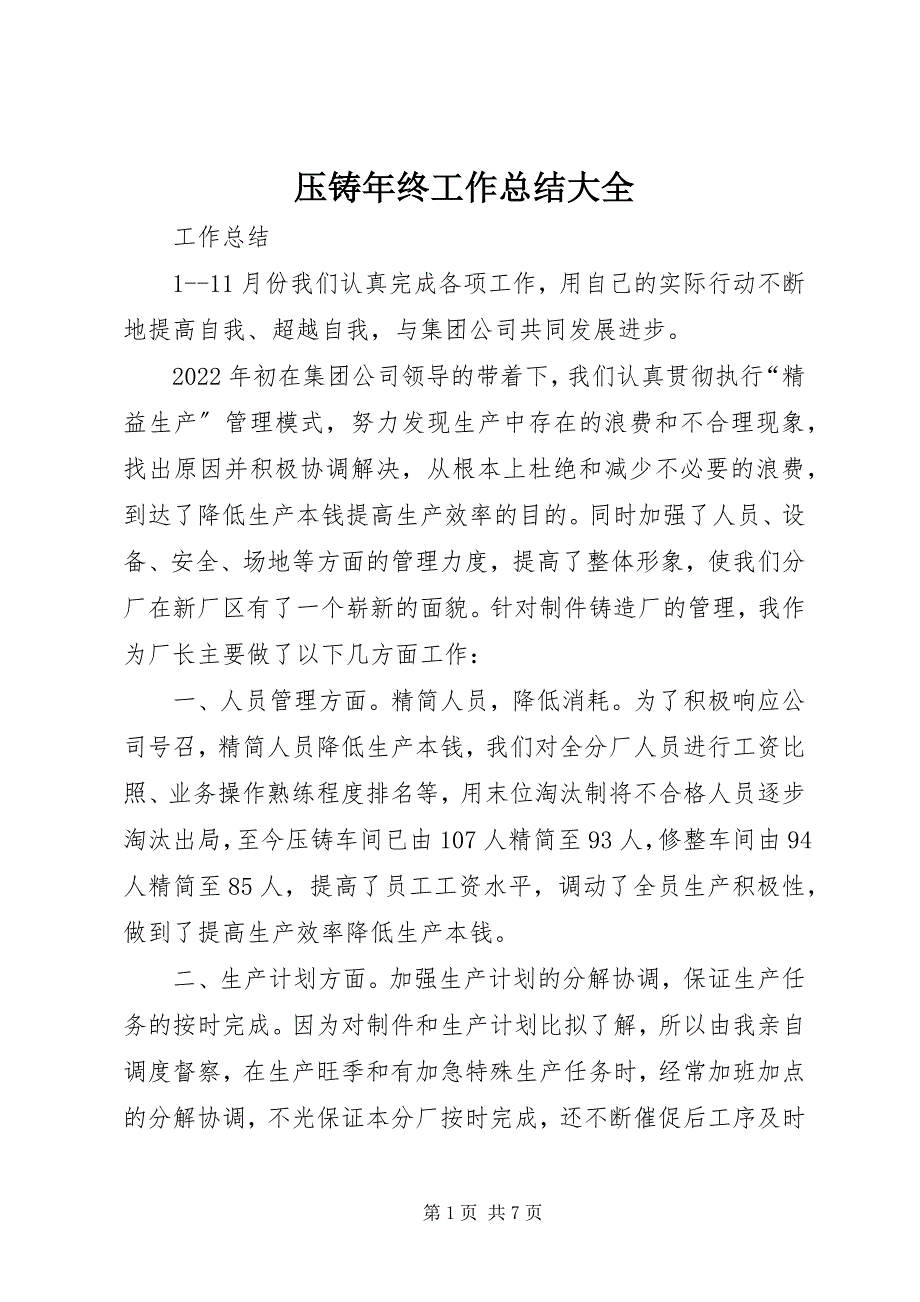 压铸年终工作总结大全
工作总结
1--11 月份我们认真完成各项工作，用自己的实际行动不断
地提高自我、超越自我，与集团公司共同发展进步。
2022 年初在集团公司领导的带着下，我们认真贯彻执行“精
益生产〞管理模式，努力发现生产中存在的浪费和不合理现象，
找出原因并积极协调解决，从根本上杜绝和减少不必要的浪费，
到达了降低生产本钱提高生产效率的目的。同时加强了人员、设
备、安全、场地等方面的管理力度，提高了整体形象，使我们分
厂在新厂区有了一个崭新的面貌。针对制件铸造厂的管理，我作
为厂长主要做了以下几方面工作：
一、人员管理方面。精简人员，降低消耗。为了积极响应公
司号召，精简人员降低生产本钱，我们对全分厂人员进行工资比
照、业务操作熟练程度排名等，用末位淘汰制将不合格人员逐步
淘汰出局，至今压铸车间已由 107 人精简至 93 人，修整车间由 94
人精简至 85 人，提高了员工工资水平，调动了全员生产积极性，
做到了提高生产效率降低生产本钱。
二、生产计划方面。加强生产计划的分解协调，保证生产任
务的按时完成。因为对制件和生产计划比拟了解，所以由我亲自
调度督察，在生产旺季和有加急特殊生产任务时，经常加班加点
的分解协调，不光保证本分厂按时完成，还不断催促后工序及时
第 1 页 共 7 页